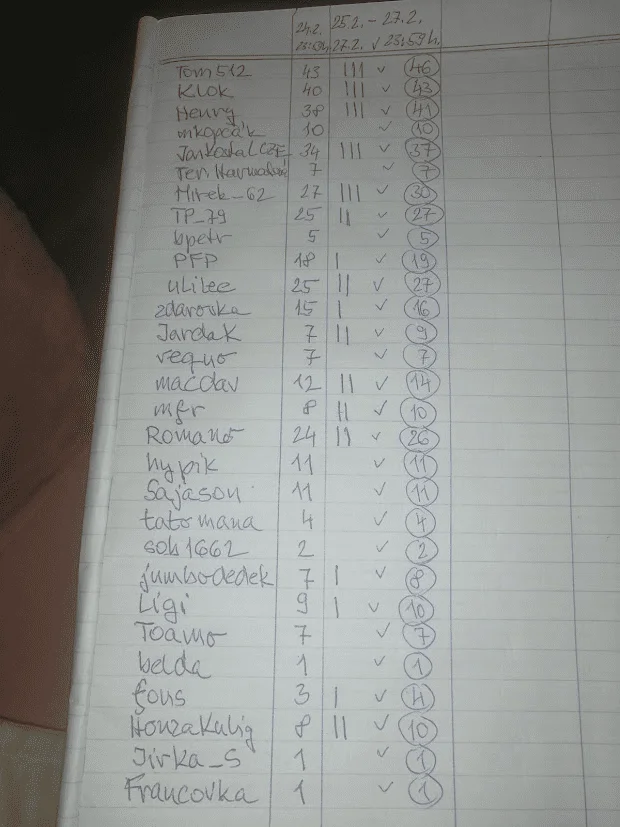 24.2. 25.2. – 27.2.
27.2. ✓ 23:59h.
Tom512 43 III ✓ 46
Klok 40 III ✓ 43
Henry 38 III ✓ 41
mkopčák 10 ✓ 10
JankostalCZE 34 III ✓ 37
Ten 7 ✓ 7
Mirek_62 27 III ✓ 30
TP_79 25 II ✓ 27
bpetr 5 ✓ 5
PFP 18 I ✓ 19
ulilee 25 II ✓ 27
zdarovka 15 I ✓ 16
Jardak 7 II ✓ 9
requo 7 ✓ 7
macdav 12 II ✓ 14
mfr 8 II ✓ 10
Romano 24 II ✓ 26
hypik 11 ✓ 11
Sajason 11 ✓ 11
tatomana 4 ✓ 4
sob1662 2 ✓ 2
jumbodedek 7 I ✓ 8
Ligi 9 I ✓ 10
Toamo 7 ✓ 7
belda 1 ✓ 1
fous 3 I ✓ 4
HonzaKulig 8 II ✓ 10
Jirka_S 1 ✓ 1
Francovka 1 ✓ 1